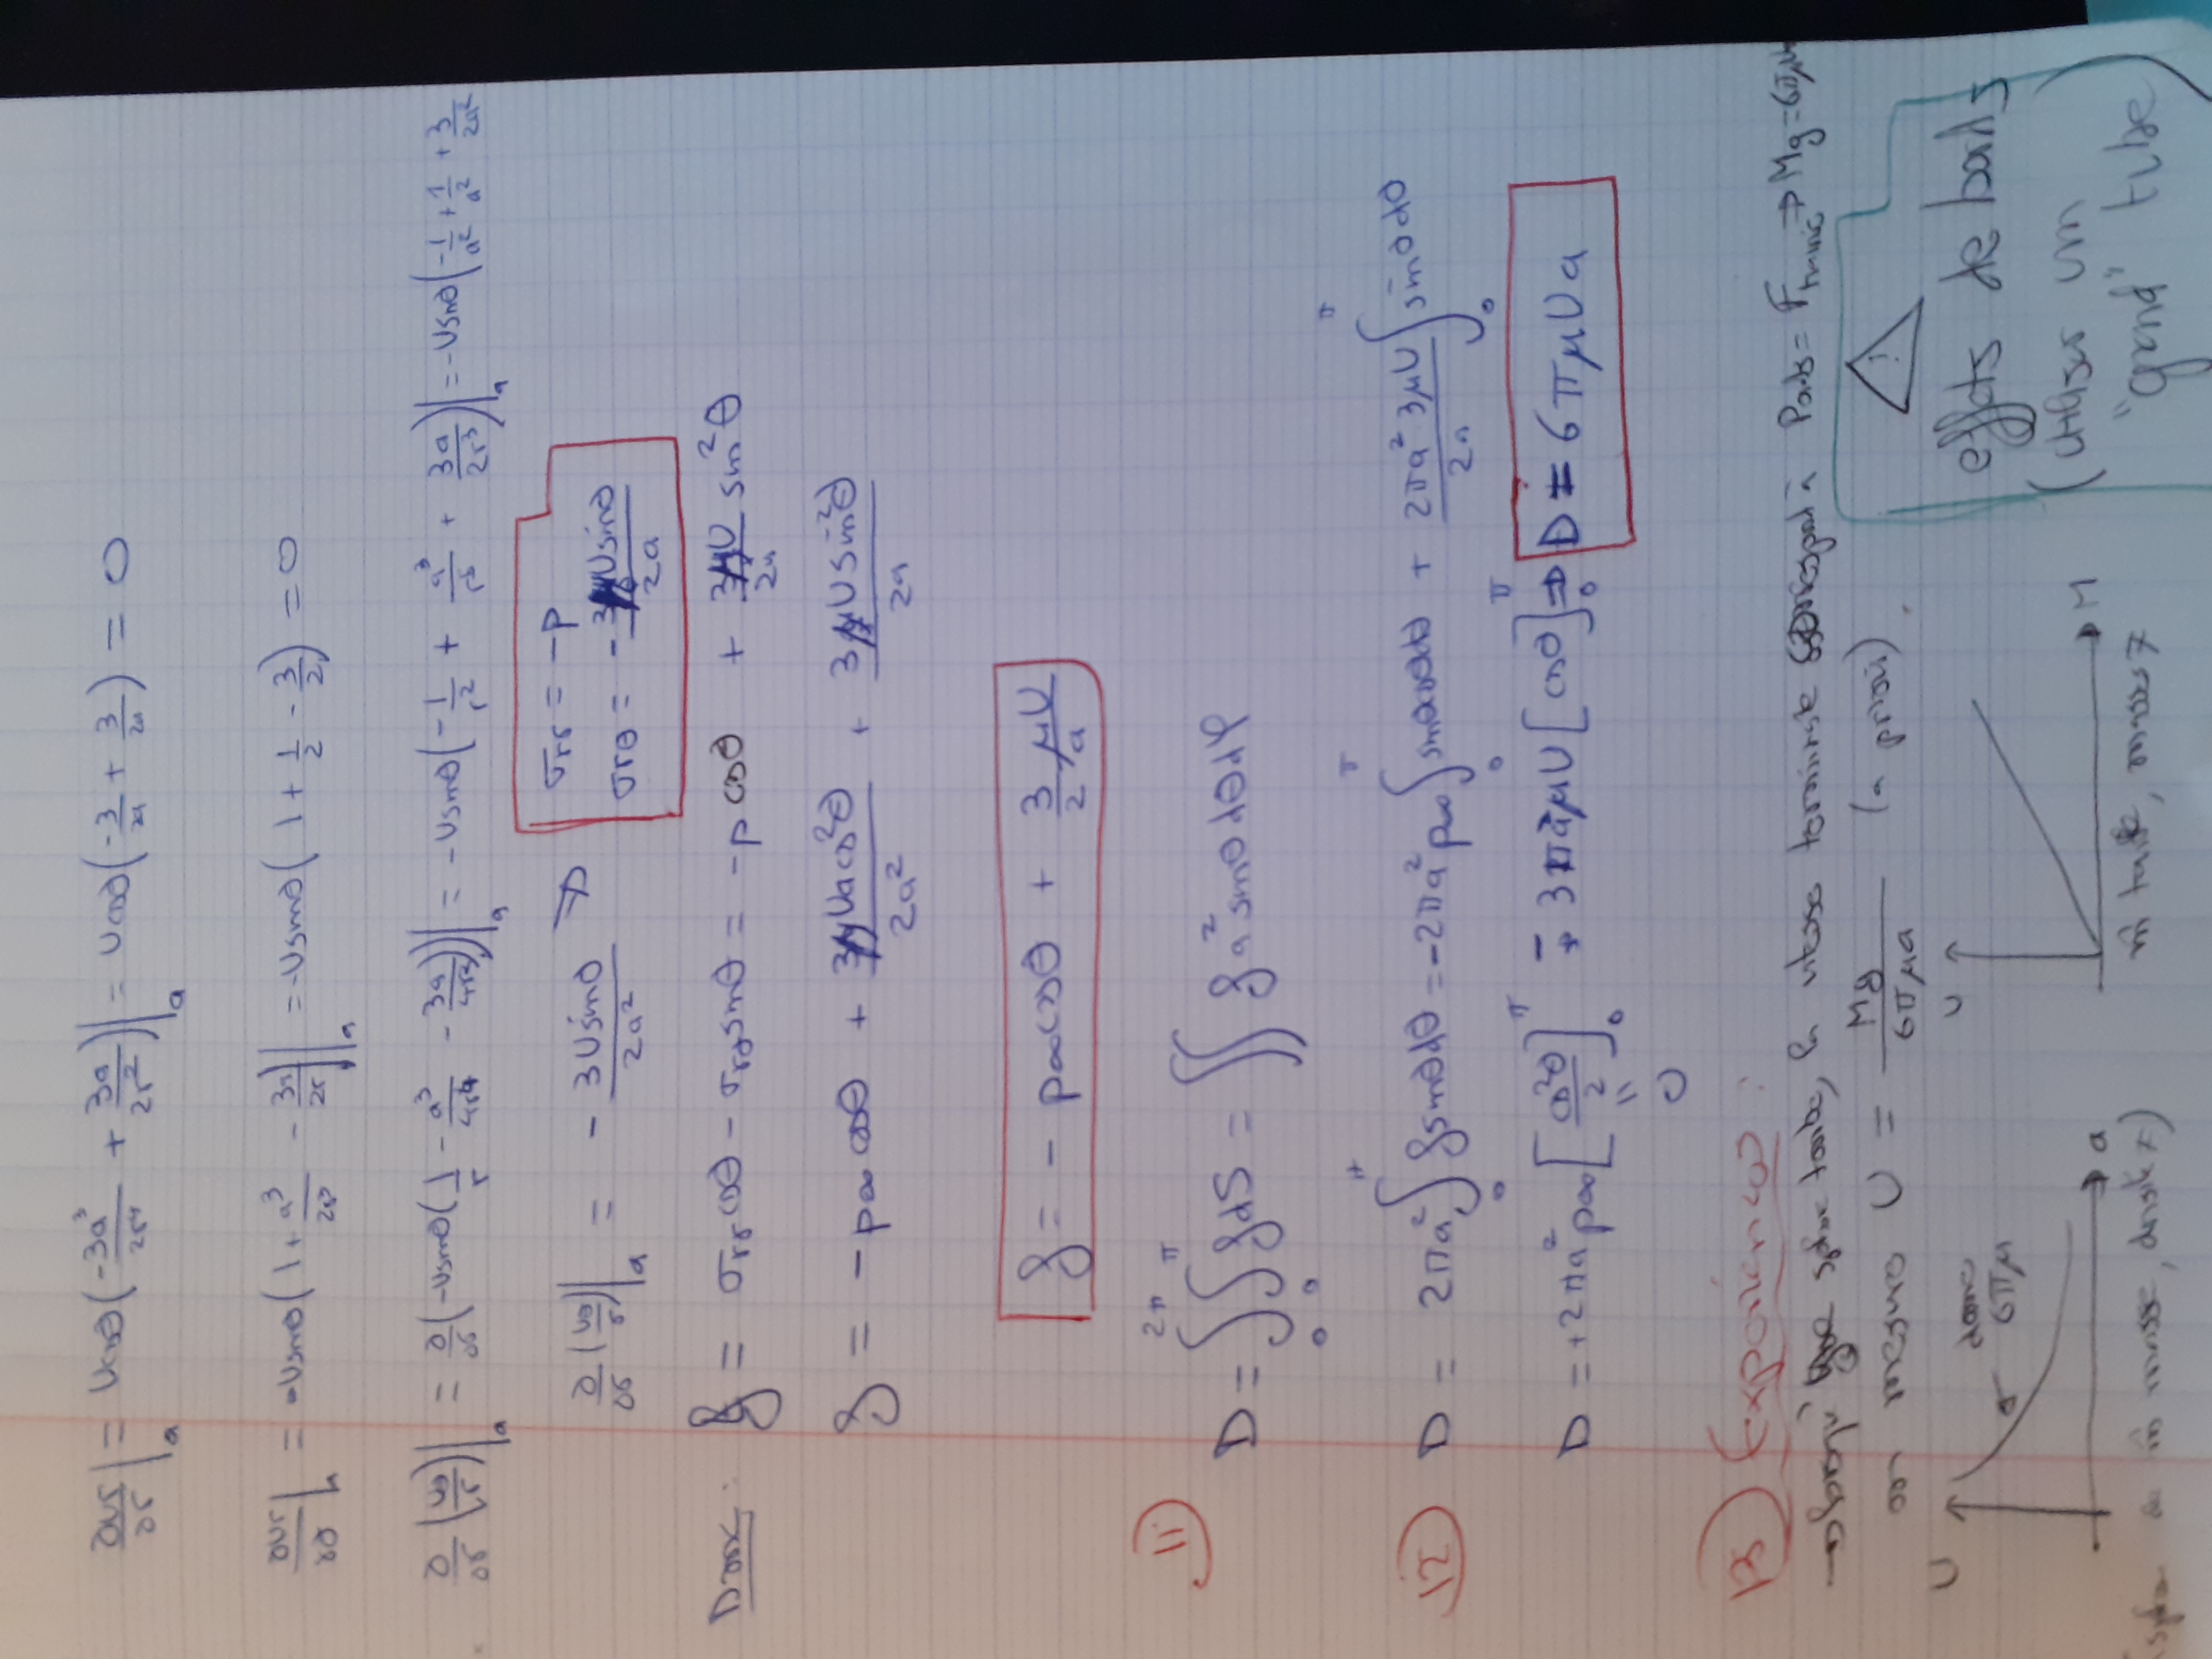 ∂vr/∂r|a = Ucosθ(-3a³/2r⁴ + 3a/2r²)|a = Ucosθ(-3/2a + 3/2a) = 0
∂vr/∂θ|a = -Usinθ(1 + a³/2r³ - 3a/2r)|a = -Usinθ(1 + 1/2 - 3/2) = 0
∂/∂r(vθ/r)|a = ∂/∂r(-Usinθ(1/r - a³/4r⁴ - 3a/4r²))|a = -Usinθ(-1/r² + a³/r⁵ + 3a/2r³)|a = -Usinθ(-1/a² + 1/a² + 3/2a²
∂/∂r(vθ/r)|a = - 3Usinθ/2a² ⇒
σrr = -p
σrθ = - 3μUsinθ/2a
Donc : f = σrr cosθ - σrθ sinθ = -p cosθ + 3μU/2a sin²θ
f = -p∞ cosθ + 3μUacos²θ/2a² + 3μUsin²θ/2a
f = - p∞cosθ + 3/2 μU/a
11
D = ∫₀^2π ∫₀^π f dS = ∬ f a² sinθ dθ dφ
12 D = 2πa² ∫₀^π f sinθdθ = -2πa² p∞ ∫₀^π sinθcosθdθ + 2πa² 3μU/2a ∫₀^π sinθdθ
D = +2πa² p∞ [cos²θ/2]₀^π - 3πaμU [cosθ]₀^π ⇒ D = 6πμUa
= 0
13 Expériences :
→ sphère tombe, la vitesse terminale correspond à Poids = F ⇒ Mg = 6πμ
on mesure U = Mg/6πμa (a priori).
U
donne 6πμ
a
m̂ masse, densité ≠)
U
M
m̂ taille, masses ≠
!
effets de bords
(utiliser un
"grand" tube)